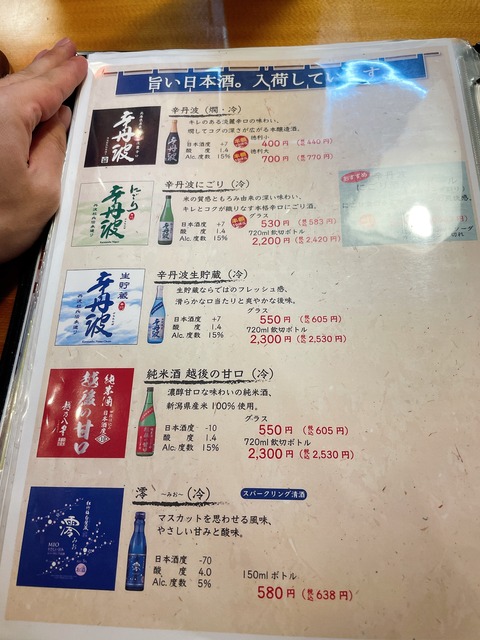 旨い日本酒。入荷してい す
辛丹波
辛丹波(燗・冷)
キレのある淡麗辛口の味わい、
燗してコクの深さが広がる本醸造酒。
日本酒度 +7
酸度 1.4
Alc.度数 15%
徳利小
400円(税込440円)
徳利大
700円(税込770円)
にごり
辛丹波
辛丹波にごり(冷)
米の質感ともろみ由来の深い味わい、
キレとコクが織りなす本格辛口にごり酒。
日本酒度 +7
酸度 1.4
Alc.度数 15%
グラス
530円(税込583円)
720ml飲切ボトル
2,200円(税込2,420円)
おすすめ
生貯蔵
辛丹波
辛丹波生貯蔵(冷)
生貯蔵ならではのフレッシュ感、
滑らかな口当たりと爽やかな後味。
日本酒度 +7
酸度 1.4
Alc.度数 15%
グラス
550円(税込605円)
720ml飲切ボトル
2,300円(税込2,530円)
純米酒
越後の甘口
純米酒 越後の甘口(冷)
濃醇甘口な味わいの純米酒、
新潟県産米100%使用。
日本酒度 -10
酸度 1.4
Alc.度数 15%
グラス
550円(税込605円)
720ml飲切ボトル
2,300円(税込2,530円)
澪
MIO
澪 ~みお~(冷)
スパークリング清酒
マスカットを思わせる風味、
やさしい甘みと酸味。
日本酒度 -70
酸度 4.0
Alc.度数 5%
150mlボトル
580円(税込638円)